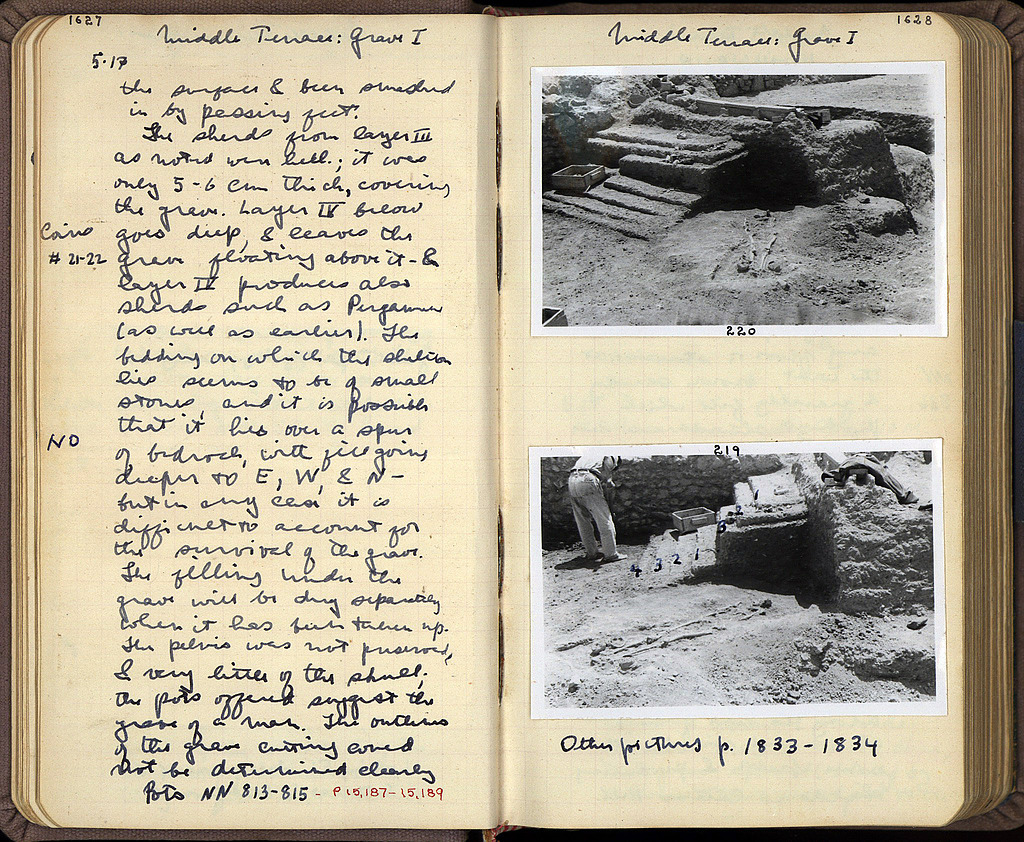 1627
Middle Terrace: Grave I
5.17
the surface & been smashed
in by passing feet.
The sherds from layer III
as noted were hell.; it was
only 5-6 cm thick, covering
the grave. Layer IV below
Coins
goes deep, & leaves the
# 21-22
grave floating above it - &
layer IV produces also
sherds such as Pergamene
(as well as earlier). The
bedding on which the skeleton
lies seems to be of small
stones, and it is possible
that it lies over a spur
NO
of bedrock, with fill going
deeper to E, W, & N -
but in any case it is
difficult to account for
the survival of the grave.
The filling under the
grave will be dug separately
when it has been taken up.
The pelvis was not preserved,
& very little of the skull.
The pots offered suggest the
grave of a man. The outlines
of the grave cutting could
not be determined clearly
Pots NN 813-815 - P 15,187-15,189
1628
Middle Terrace: Grave I
220
219
2
3
4 3 2 1
Other pictures p. 1833-1834